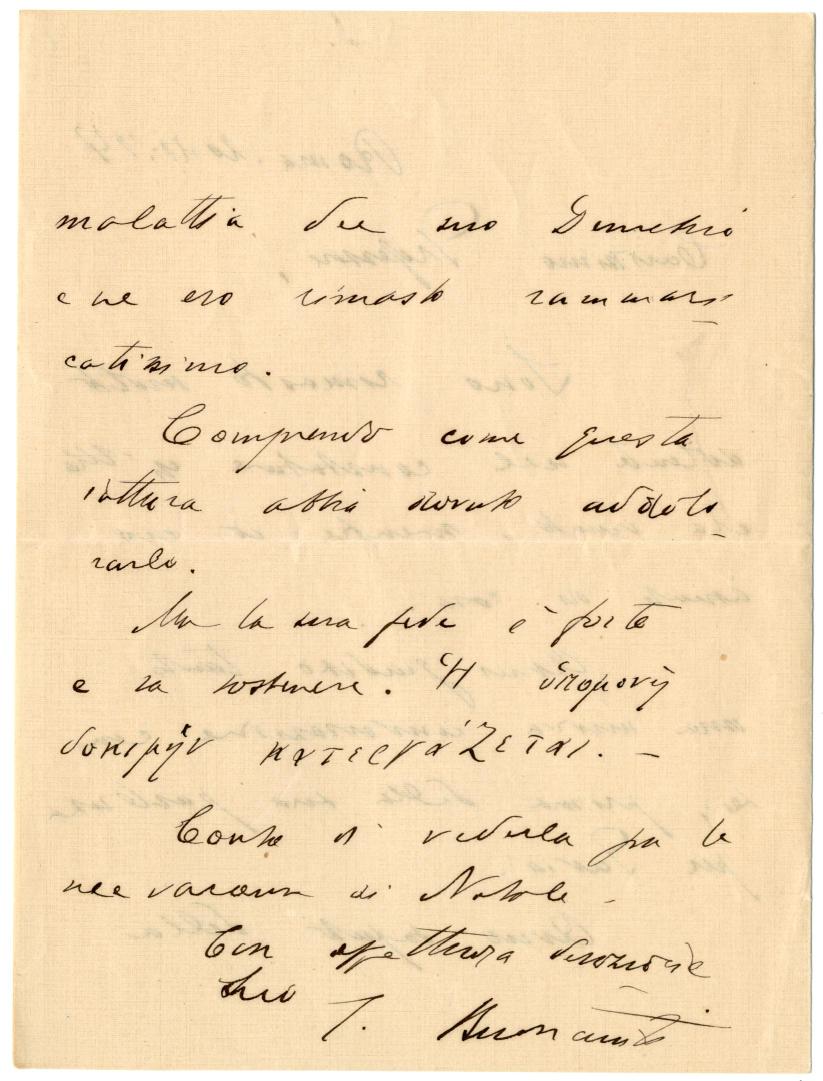 malattia del suo Demetrio
e ne ero rimasto rammari
catissimo.
Comprendo come questa
iattura abbia dovuto addolo
rarlo.
Ma la sua fede è forte
e sa sostenere. Ἡ ὑπομονὴ
δοκιμὴν κατεργάζεται. –
Conto di vederla fra le
nelle vacanze di Natale.
Con affettuosa devozione
Suo
Buonaiuti